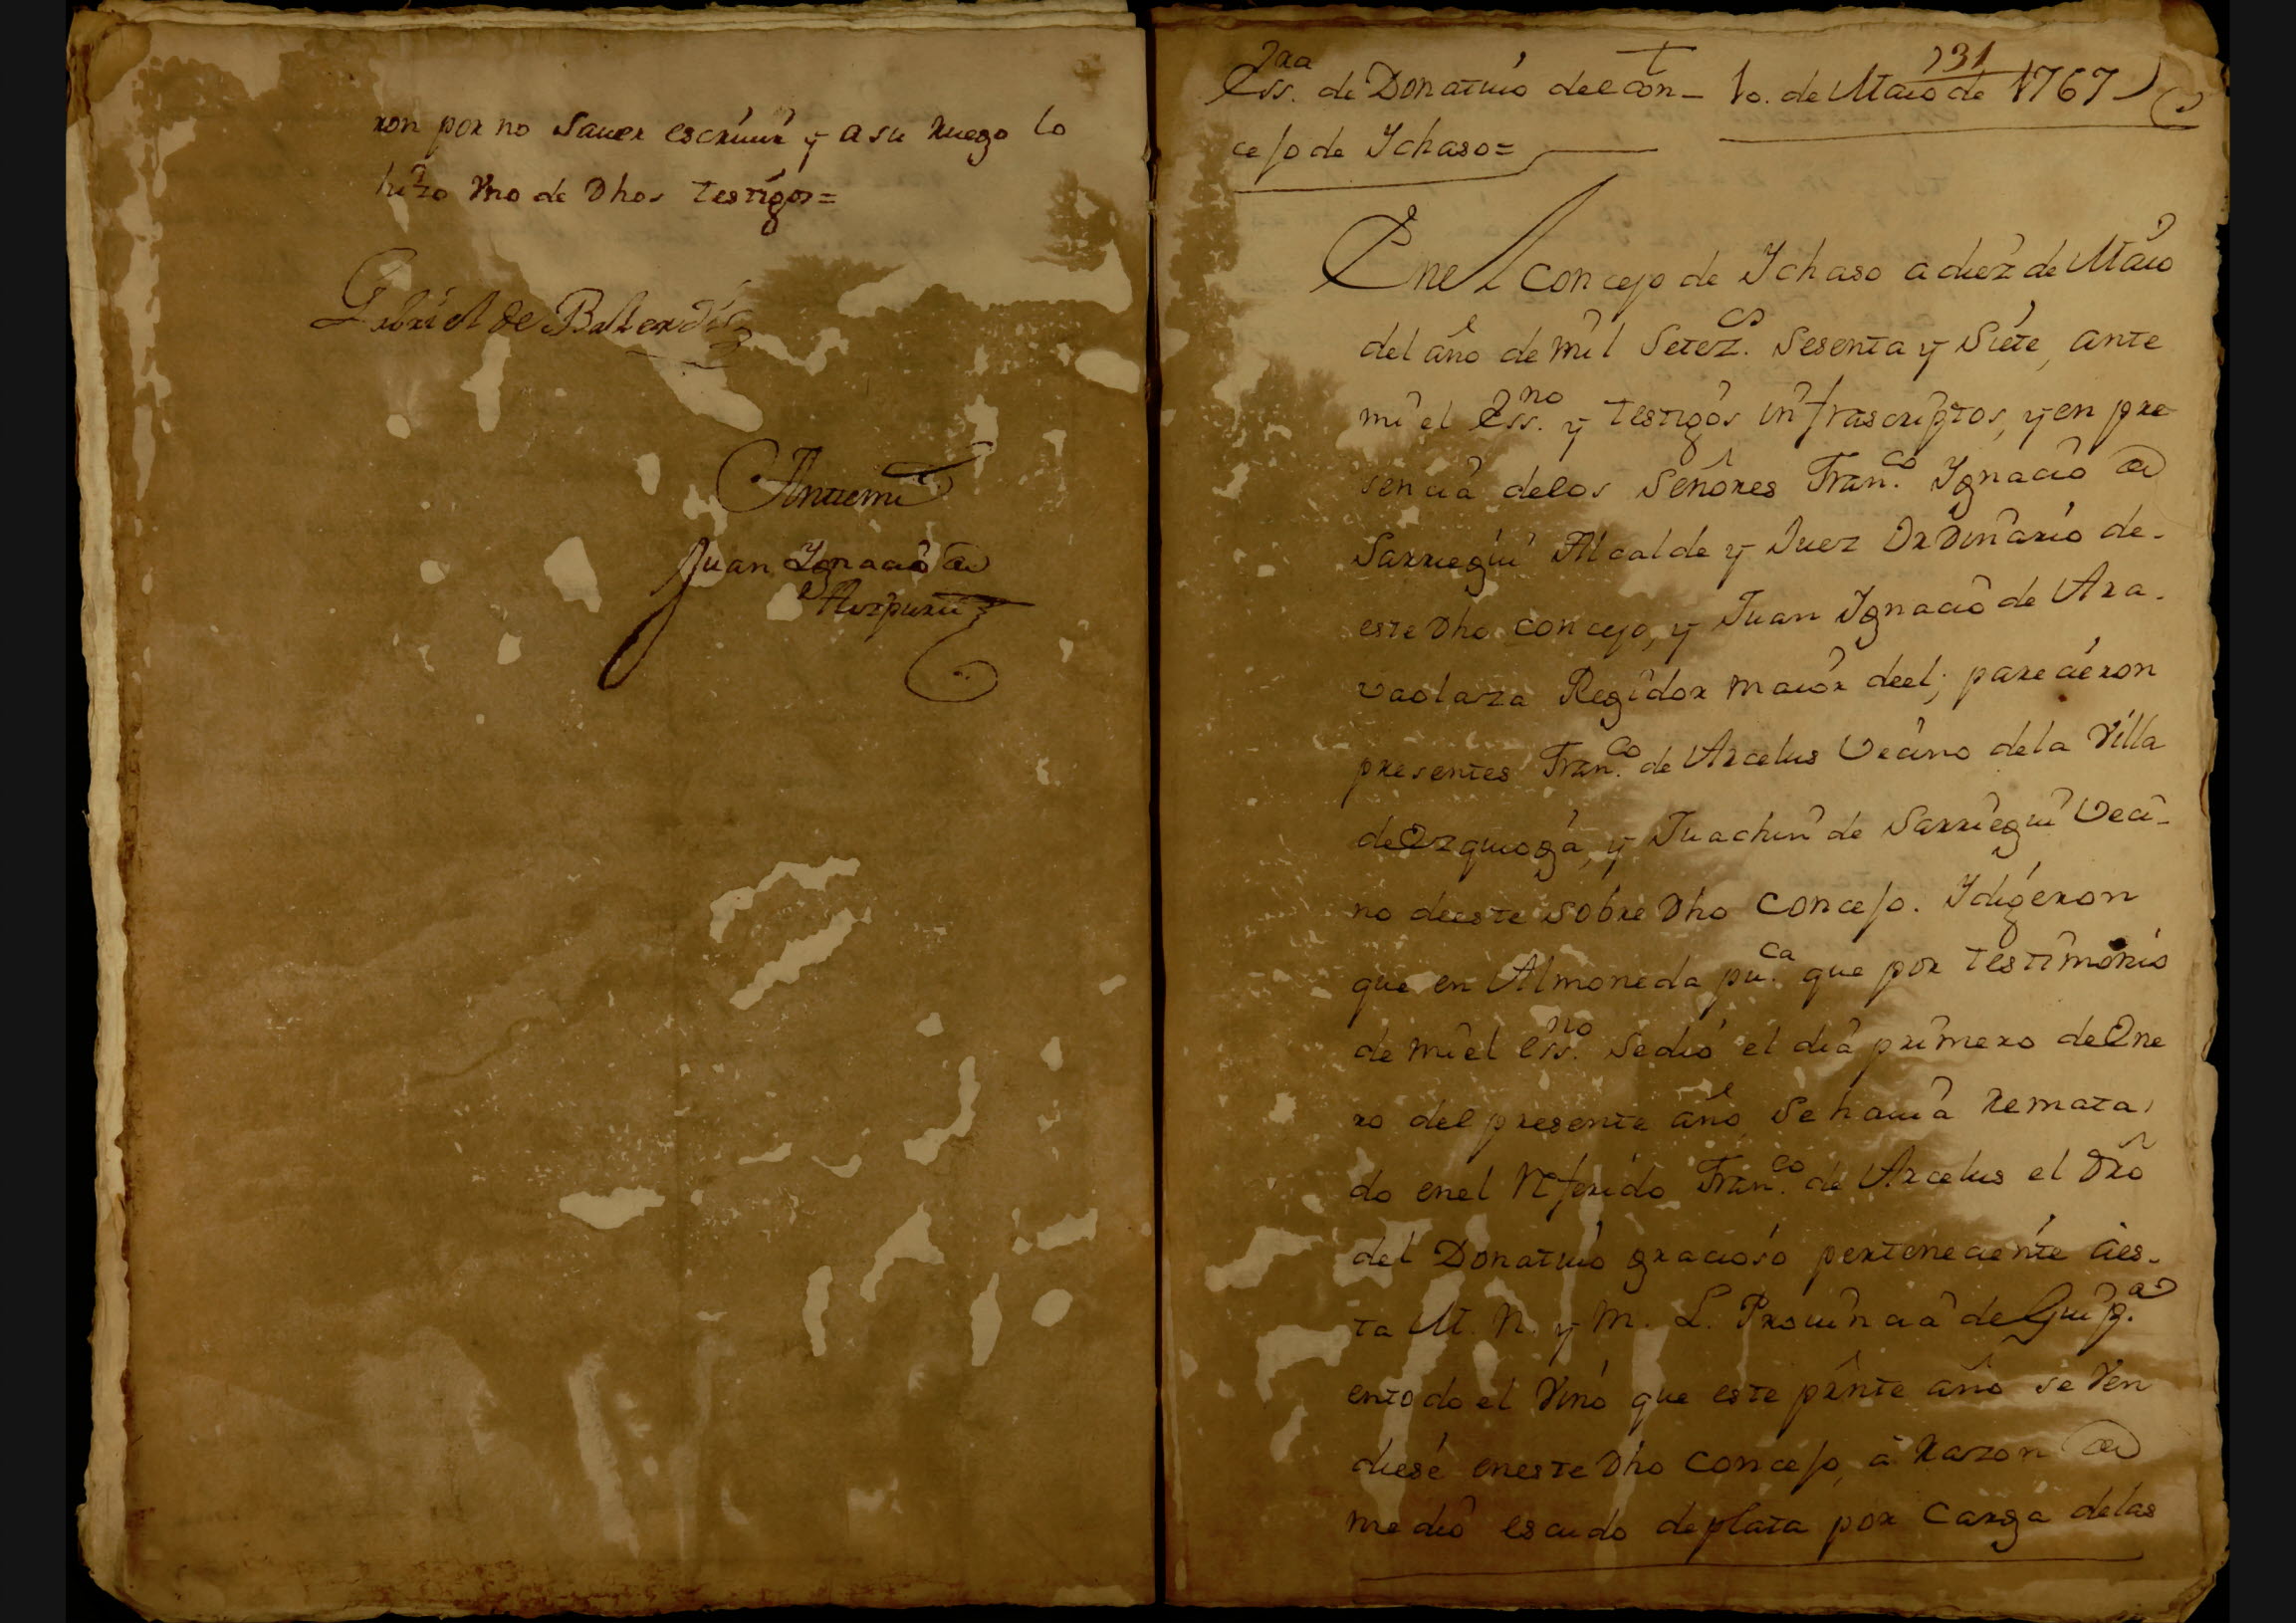 ron por no Saver escriuir y a su Ruego lo
hizo Vno de Dhos Testigos=
Gabriel de Balerdi
Antemi
Juan Ygnacio de
Aizpuru
131
Essra. de Donatiuo del con- 10. de Maio de 1767
cejo de Ychaso=
En el concejo de Ychaso a diez de Maio
del año de mil Setezs. Sesenta y Siete, ante
mi el Essno. y Testigos infrascriptos, y en pre
sencia delos Señores Franco. Ygnacio de
Sarriegui Alcalde y Juez Ordinario de-
este Dho concejo, y Juan Ygnacio de Ara-
uaolaza Regidor maior deel; parecieron
presentes Franco. de Arcelus Vecino dela Villa
de Ezquioga, y Juachin de Sarriegui Veci-
no deeste sobre Dho Concejo. Y digeron
que en Almoneda puca. que por testimonio
de mi el Essno. se dio el dia primero de Ene
ro del presente año, Se hauia Remata
do enel Referido Franco. de Arcelus el Dro
del Donatiuo gracioso perteneciente a es-
ta M. N. y M. L. Prouincia de Guipa.
en todo el Vino que este pnte año se Ven
diese eneste Dho Concejo, a Razon de
medio escudo de plata por Carga delas